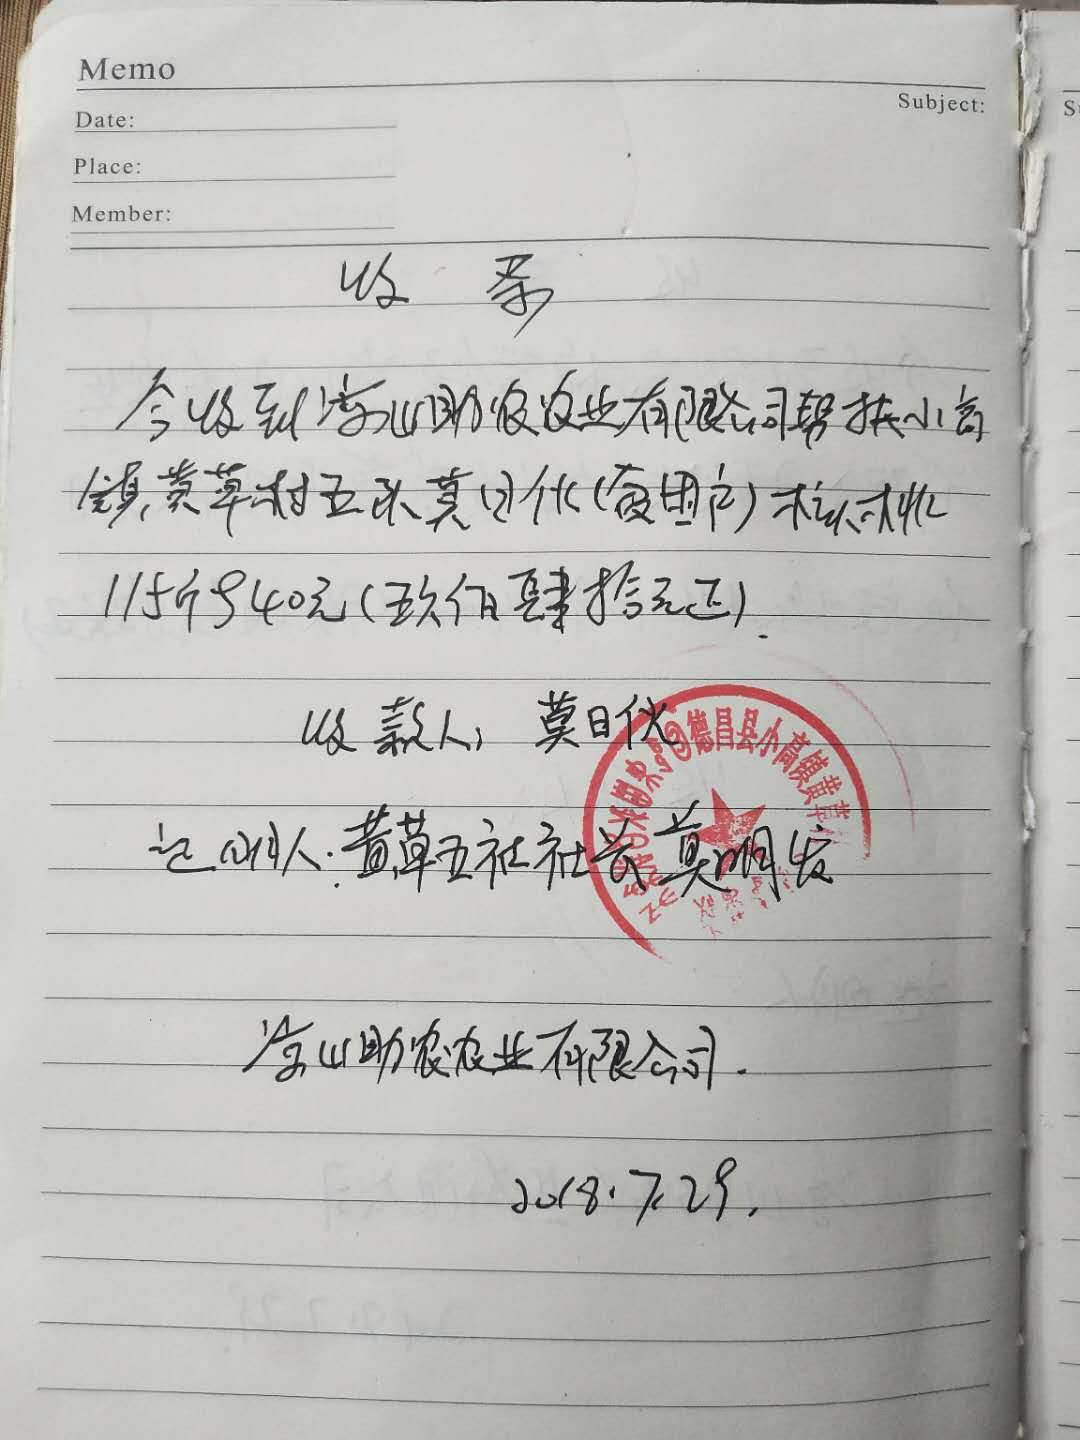 Memo
Subject:
Date:
Place:
Member:
收 条
今收到凉山助农农业有限公司帮扶小高
镇黄草村五社莫日伙(贫困户)核桃
115斤940元(玖佰肆拾元正).
收款人: 莫日伙
证明人:黄草五社社长 莫明发
德昌县小高镇黄草
凉山助农农业有限公司.
2018.7.29.